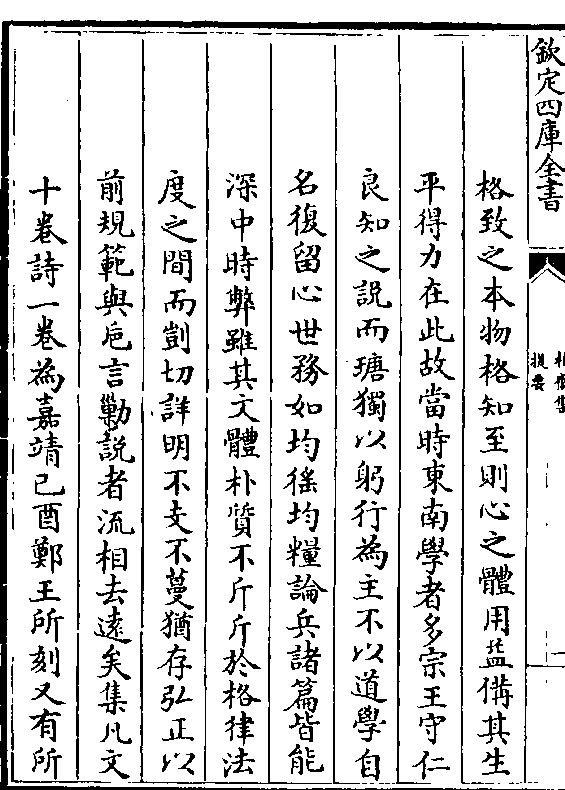 欽定四庫全書
提要
格致之本物格知至則心之體用益備其生
平得力在此故當時東南學者多宗王守仁
良知之説而瑭獨以躬行為主不以道學自
名復留心世務如均徭均糧論兵諸篇皆能
深中時弊雖其文體朴質不斤斤於格律法
度之間而剴切詳明不支不蔓猶存弘正以
前規範與巵言勦説者流相去逺矣集凡文
十卷詩一卷為嘉靖己酉鄭王所刻又有所